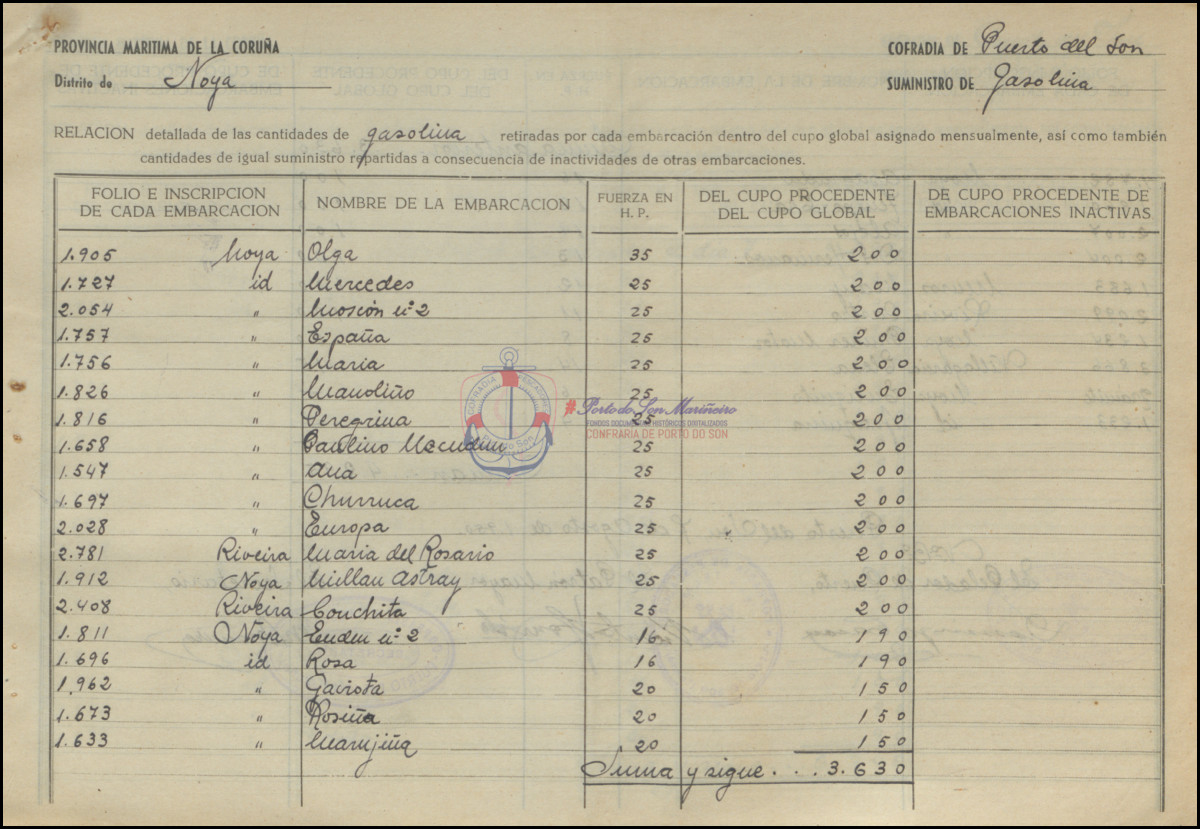 PROVINCIA MARITIMA DE LA CORUÑA
COFRADIA DE Puerto del Son
Distrito de Noya
SUMINISTRO DE Gasolina
RELACION detallada de las cantidades de gasolina retiradas por cada embarcación dentro del cupo global asignado mensualmente, así como también
cantidades de igual suministro repartidas a consecuencia de inactividades de otras embarcaciones.
FOLIO E INSCRIPCION DE CADA EMBARCACION
NOMBRE DE LA EMBARCACION
FUERZA EN H. P.
DEL CUPO PROCEDENTE DEL CUPO GLOBAL
DE CUPO PROCEDENTE DE EMBARCACIONES INACTIVAS
1.905 Noya Olga 35 200
1.727 id Mercedes 25 200
2.054 " nº 2 25 200
1.757 " España 25 200
1.756 " Maria 25 200
1.826 " Manoliño 25 200
1.816 " Peregrina 25 200
1.658 " Paulino 25 200
1.547 " Ana 25 200
1.697 " Churruca 25 200
2.028 " Europa 25 200
2.781 Riveira Maria del Rosario 25 200
1.912 Noya Millan Astray 25 200
2.408 Riveira Conchita 25 200
1.811 Noya nº 2 16 190
1.696 id Rosa 16 190
1.962 " Gaviota 20 150
1.673 " Rosiña 20 150
1.633 " Marujiña 20 150
Suma y sigue . . . 3.630
COFRADIA PESCADORES
Porto do Son
#Porto do Son Mariñeiro
FONDOS DOCUMENTAIS HISTÓRICOS DIXITALIZADOS
CONFRARIA DE PORTO DO SON